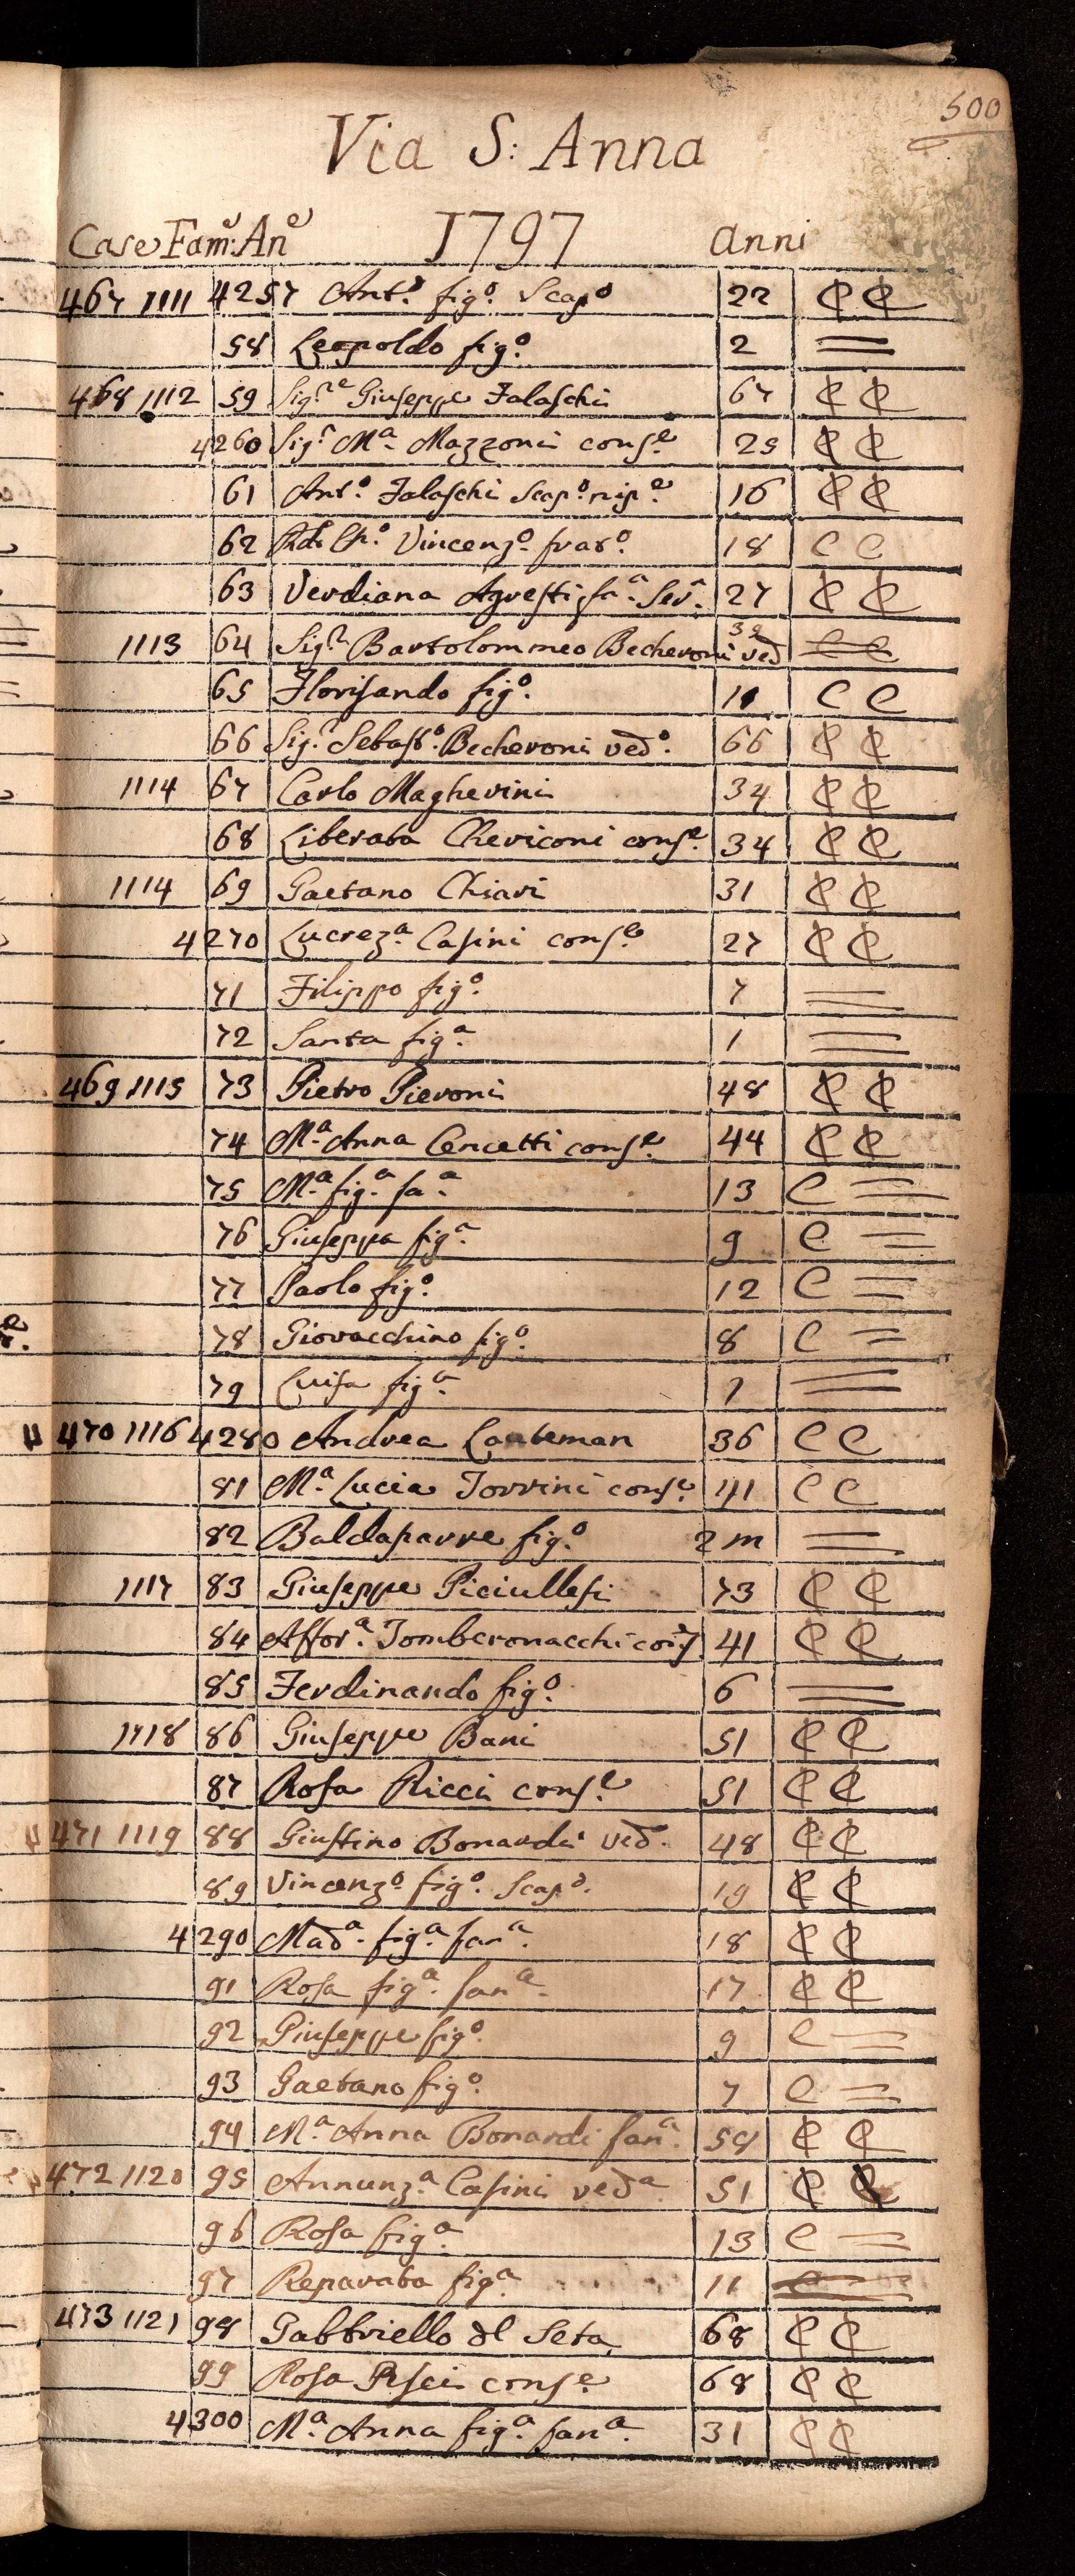 500
Via S: Anna
Case Fam:e An:e 1797 anni
467 1111 4257 Ant.o fig.o Scap.o 22 C C
58 Leopoldo fig.o 2 =
468 1112 59 Sig.re Giuseppe Falaschi 67 C C
4260 Sig.r M.a Mazzoni cons.e 25 C C
61 Ant.o Falaschi Scap.o nip.e 16 C C
62 Rdo Ch.o Vincenz.o frat.o 18 C C
63 Verdiana Agresti fa.a Ser.a 27 C C
1113 64 Sig.r Bartolommeo Becheroni ved 39 C C
65 Florisando fig.o 11 C C
66 Sig.r Sebast.o Becheroni ved.o 66 C C
1114 67 Carlo Magherini 34 C C
68 Liberata Cheviconi cons.e 34 C C
1114 69 Gaetano Chiari 31 C C
4270 Lucrez.a Casini cons.e 27 C C
71 Filippo fig.o 7 =
72 Santa fig.a 1 =
469 1115 73 Pietro Pieroni 48 C C
74 M.a Anna Cencetti cons.e 44 C C
75 M.a fig.a fa.a 13 C =
76 Giuseppa fig.a 9 C =
77 Paolo fig.o 12 C =
78 Giovacchino fig.o 8 C =
79 Luisa fig.a 7 =
470 1116 4280 Andrea Lauteman 36 C C
81 M.a Lucia Torrini cons.e 41 C C
82 Baldasarre fig.o 2 m =
1117 83 Giuseppe Piciullesi 73 C C
84 Assor.a Tomberonacchi 41 C C
85 Ferdinando fig.o 6 =
1118 86 Giuseppe Bani 51 C C
87 Rosa Ricci cons.e 51 C C
471 1119 88 Giustino Bonardi ved. 48 C C
89 Vincenz.o fig.o Scap.o 19 C C
4290 Mad.a fig.a fan.a 18 C C
91 Rosa fig.a fan.a 17 C C
92 Giuseppe fig.o 9 C =
93 Gaetano fig.o 7 C =
94 M.a Anna Bonardi fan.a 54 C C
472 1120 95 Annunz.a Casini ved.a 51 C C
96 Rosa fig.a 13 C =
97 Reparata fig.a 11 =
473 1121 98 Gabbriello del Seta 68 C C
99 Rosa Pesci cons.e 68 C C
4300 M.a Anna fig.a fan.a 31 C C